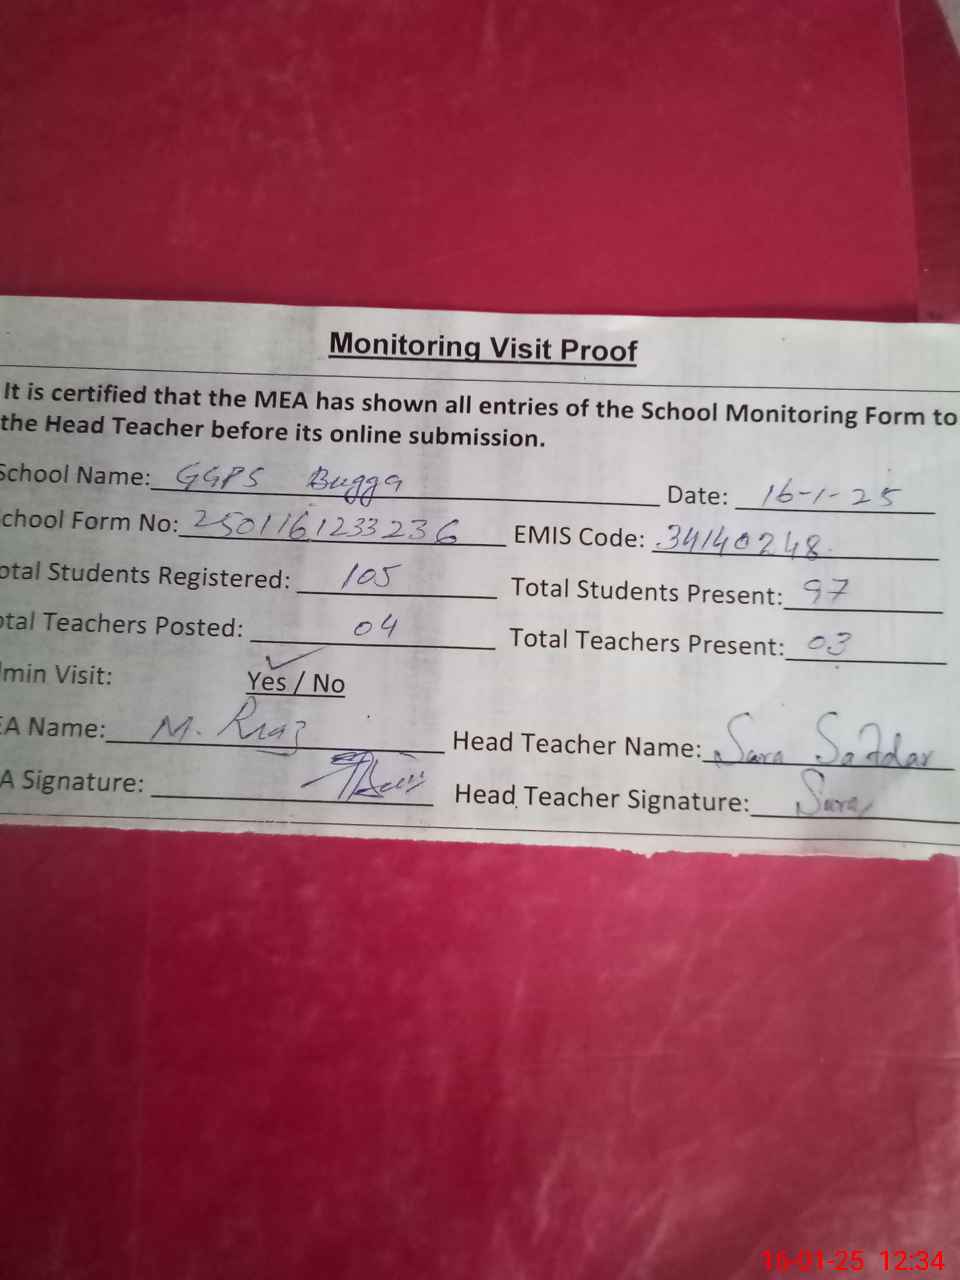 Monitoring Visit Proof
It is certified that the MEA has shown all entries of the School Monitoring Form to
the Head Teacher before its online submission.
School Name: GGPS Bugga Date: 16-1-25
chool Form No: 2501161233236 EMIS Code: 34140248
otal Students Registered: 105 Total Students Present: 97
otal Teachers Posted: 04 Total Teachers Present: 03
min Visit: Yes / No
EA Name: M. Riaz Head Teacher Name: Sara Safdar
A Signature: Head Teacher Signature: Sara
16-01-25 12:34